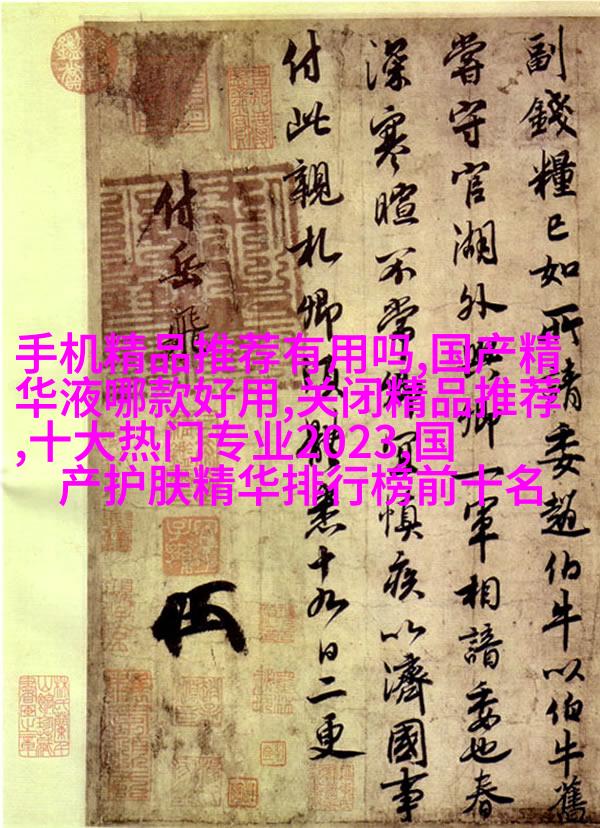 手机精品推荐有用吗,国产精
华液哪款好用,关闭精品推荐
,十大热门专业2023,国
产护肤精华排行榜前十名
副錢糧已如所請委趙伯牛以伯牛舊
嘗守官湖外與卿一軍相諳委也春
深寒暄不常卿宜慎疾以濟國事
付此親札卿須體悉十九日二更
付岳飛